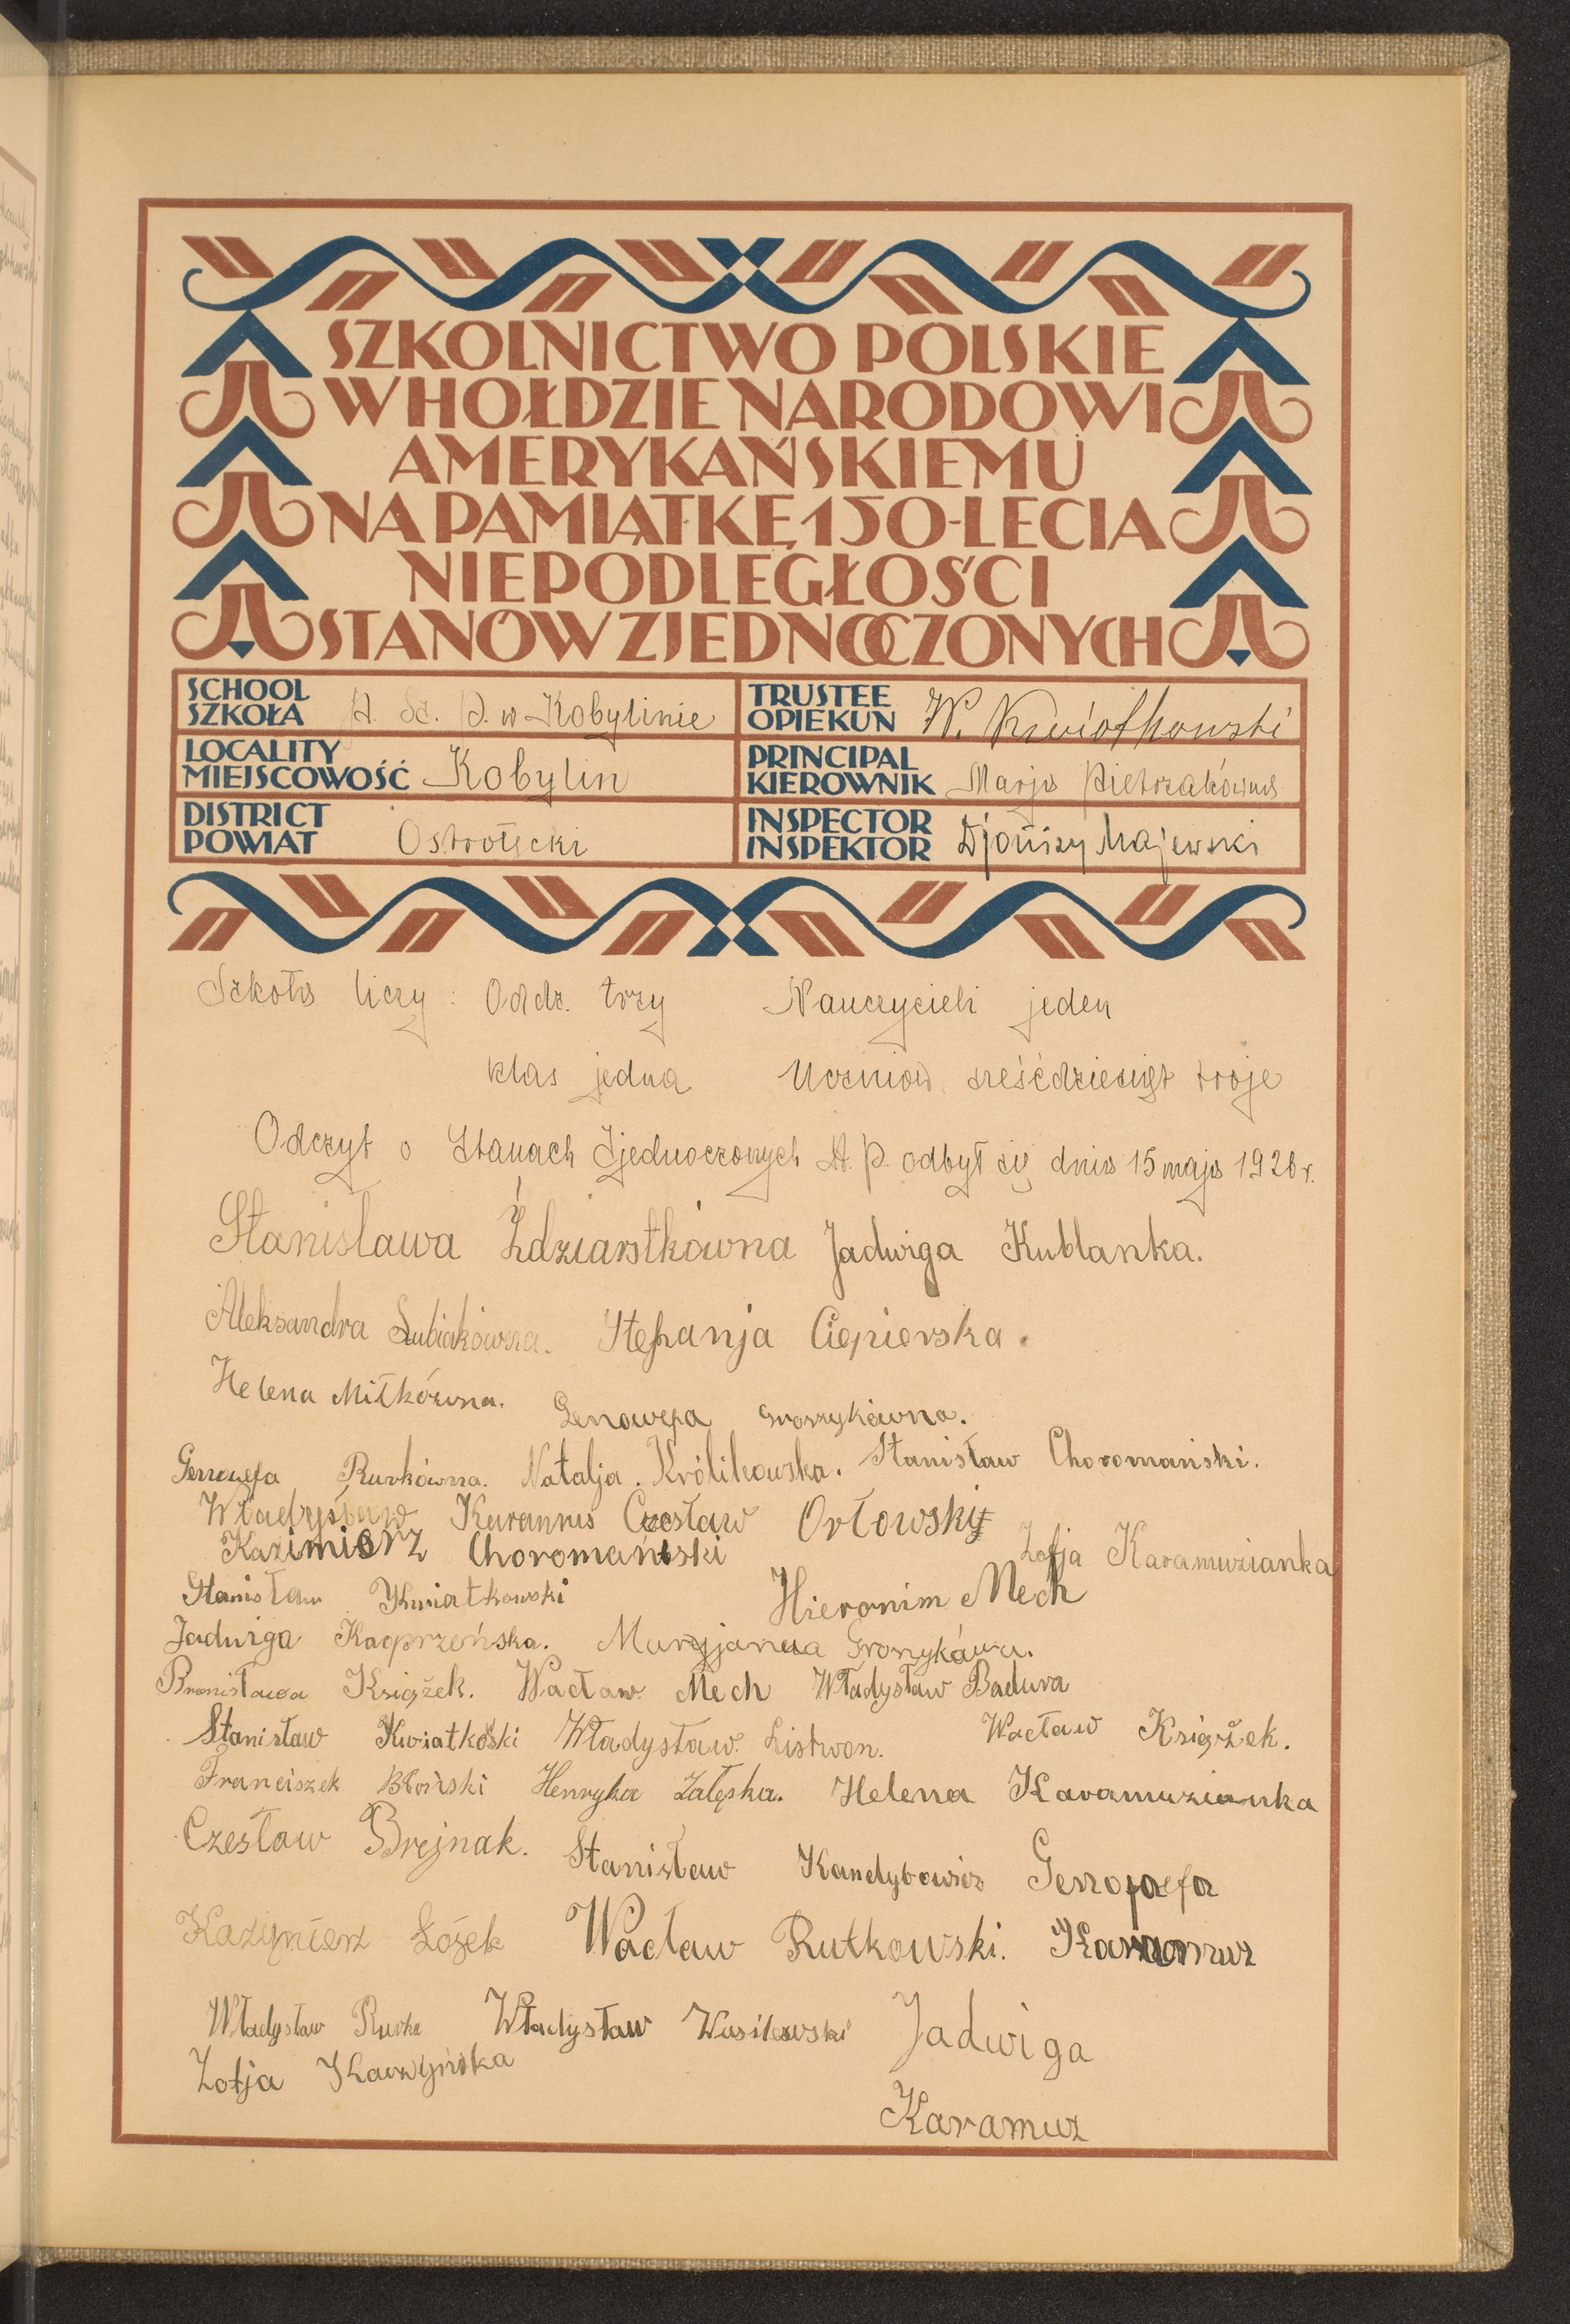 SZKOLNICTWO POLSKIE
W HOŁDZIE NARODOWI
AMERYKAŃSKIEMU
NA PAMIĄTKĘ 150-LECIA
NIEPODLEGŁOŚCI
STANÓW ZJEDNOCZONYCH
SCHOOL
SZKOŁA w Kobylinie
TRUSTEE
OPIEKUN W. Kwiatkowski
LOCALITY
MIEJSCOWOŚĆ Kobylin
PRINCIPAL
KIEROWNIK Marja Pietrzakówna
DISTRICT
POWIAT Ostrołęcki
INSPECTOR
INSPEKTOR Djonizy Majewski
Szkoła liczy: Oddz. trzy Nauczycieli jeden
klas jedna Uczniów sześćdziesiąt troje
Odczyt o Stanach Zjednoczonych A. P. odbył się dnia 15 maja 1926 r.
Stanisława Żdziarstkówna Jadwiga Kublanka.
Aleksandra Stefanja Ciepierska.
Helena Miłkówna. Genowefa
Genowefa Rurkówna. Natalja Królikowska. Stanisław Choromański.
Władysław Czesław Orłowski
Kazimierz Choromański Zofja Karamuzianka
Stanisław Kwiatkowski Hieronim Mech
Jadwiga Kacprzeńska. Maryjanna
Bronisława Książek. Wacław Mech Władysław Badura
Stanisław Kwiatkoski Władysław Listwon. Wacław Książek.
Franciszek Błoński Henryka Załęska. Helena Karamuzianka
Czesław Brejnak. Stanisław Kandybowicz Genowefa
Kazimierz Łożek Wacław Rutkowski. Karamuz
Władysław Rurka Władysław Wasilewski Jadwiga
Zofja
Karamuz